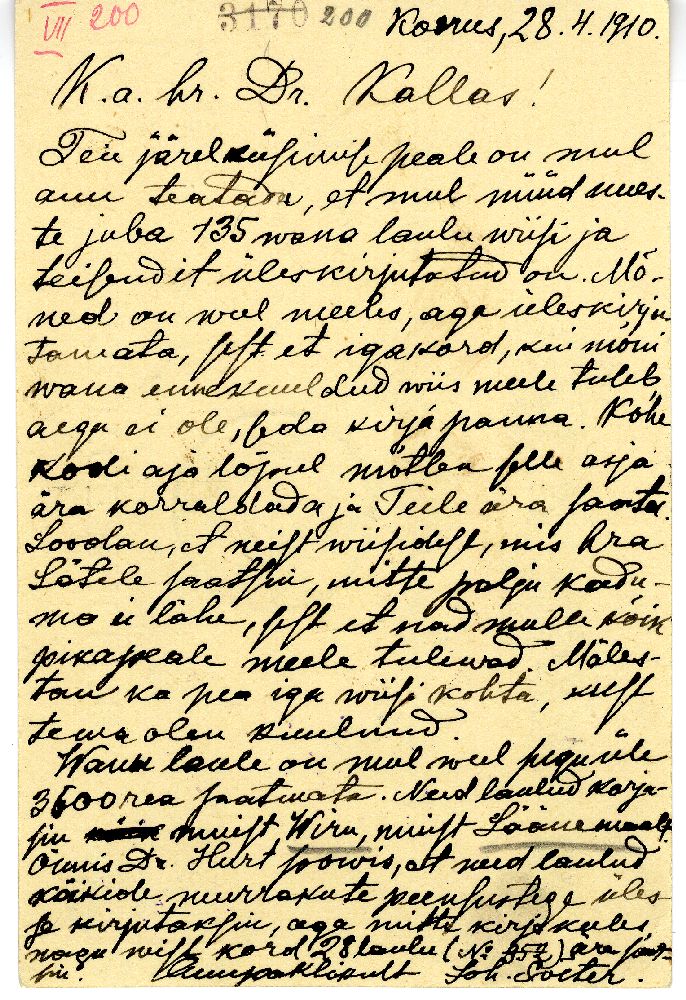 VII 200 3170 200 Koerus, 28.4.1910.
K.a. hr. Dr. Kallas!
Teie järelküsimise peale on mul
auu teatada, et mul nüüd uues-
te juba 135 wana laulu wiisi ja
teisendit üleskirjutatud on. Mõ-
ned on weel meeles, aga üleskirju
tamata, sest et igakord, kui mõni
wana ennekuuldud wiis meele tuleb
aega ei ole, seda kirja panna. Kohe
kooli aja lõpul mõtlen selle asja
ära korraldada ja Teile ära saata.
Loodan, et neist wiisidest, mis hra
Lätele saatsin, mitte palju kadu-
ma ei lähe, sest et nad mulle kõik
pikapeale meele tulewad. Mäles-
tan ka pea iga wiisi kohta, kust
tema olen kuulnud.
Wanu laule on mul weel ligi üle
3500 rea saatmata. Need laulud korja-
sin muist Wiru, muist Läänemaalt.
Õnnis Dr. Hurt soowis, et need laulud
kõikide murrakute peensustega üles
kirjutaksin, aga mitte kirjakeeles
nagu wist kord 28 laulu (No 352) ära saat-
sin. Auupaklikult Joh. Soster.